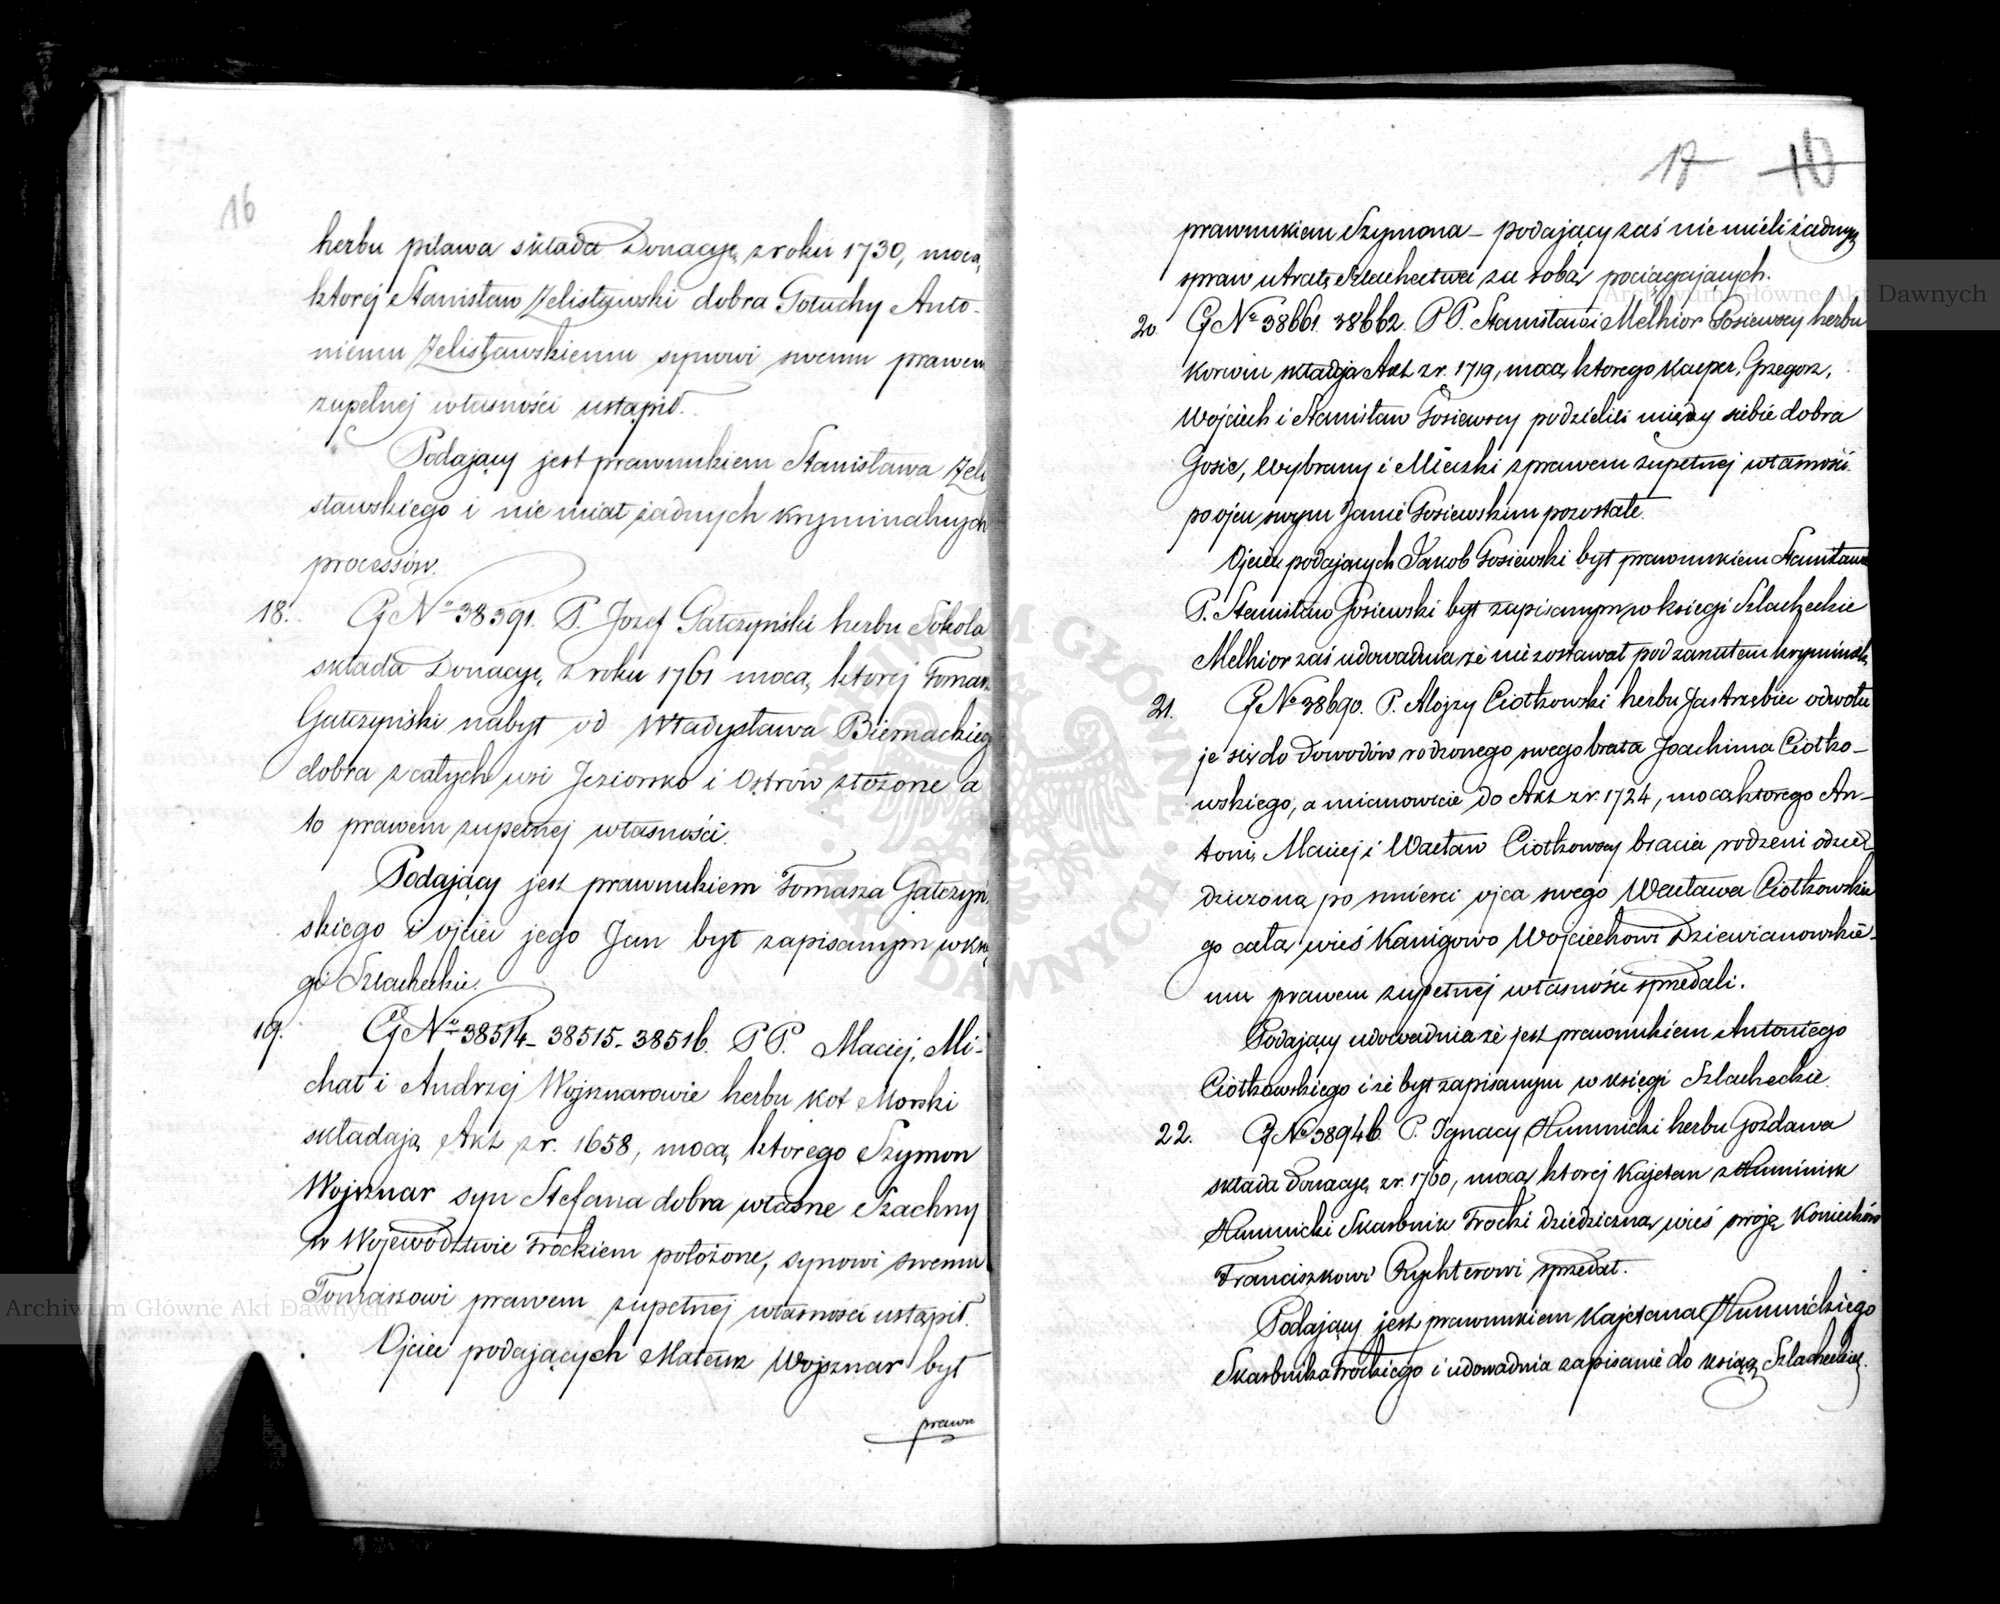 16
herbu pilawa składa Donacyę z roku 1730, mocą
ktorej Stanisław Zelisławski dobra Gołuchy Anto-
niemu Zelisławskiemu synowi swemu prawem
zupełnej własności ustąpił.
Podający jest prawnukiem Stanisława Zeli
sławskiego i nie miał żadnych kryminalnych
processów.
18. G No 38391. P. Jozef Gałczyński herbu Sokola
składa Donacyę z roku 1761 mocą ktorej Tomasz
Gałczyński nabył od Władysława Biernackiego
dobra z całych wsi Jeziorsko i Ostrów złożone a
to prawem zupełnej własności.
Podający jest prawnukiem Tomasza Gałczyń
skiego i ojciec jego Jan był zapisanym w księ
gi Szlacheckie.
19. G No 38514- 38515- 38516. P P. Maciej, Mi-
chał i Andrzej Wojsznarowie herbu Kot Morski
składają Akt z r. 1658, mocą ktorego Szymon
Wojsznar syn Stefana dobra własne Szachny
w Wojewodztwie Trockiem położone, synowi swemu
Tomaszowi prawem zupełnej własności ustąpił.
Ojciec podających Mateusz Wojsznar był
prawn
17 10
prawnukiem Szymona – podający zaś nie mieli żadnych
spraw utratę Szlachectwa za sobą pociągających.
20. G No 38661. 38662. P P. Stanisław i Melhior Gosiewscy herbu
Korwin składają Akt z r. 1719, mocą ktorego Kacper, Grzegorz,
Wojciech i Stanisław Gosiewscy podzielili między siebie dobra
Gosie, Wybrany i Mieczki z prawem zupełnej własności
po ojcu swym Janie Gosiewskim pozostałe.
Ojciec podających Jakob Gosiewski był prawnukiem Stanisława
P. Stanisław Gosiewski był zapisanym w księgi Szlacheckie
Melhior zaś udowadnia że nie zostawał pod zarzutem kryminal.
21. G No 38690. P. Alojzy Ciołkowski herbu Jastrzębiec odwołu
je się do Dowodów rodzonego swego brata Joachima Ciołko-
wskiego, a mianowicie do Akt z r. 1724, mocą ktorego An-
toni, Maciej i Wacław Ciołkowscy bracia rodzeni odzie-
dziczoną po śmierci ojca swego Wacława Ciołkowskie
go całą wieś Kanigowo Wojciechowi Dziewianowskie-
mu prawem zupełnej własności sprzedali.
Podający udowadnia że jest prawnukiem Antoniego
Ciołkowskiego i że był zapisanym w księgi Szlacheckie.
22. G No 38946. P. Ignacy Humnicki herbu Gozdawa
składa Donacyę z r. 1760, mocą ktorej Kajetan z Humnisk
Humnicki Skarbnik Trocki dziedziczną wieś swoję Koniecków
Franciszkowi Rychterowi sprzedał.
Podający jest prawnukiem Kajetana Humnickiego
Skarbnika Trockiego i udowadnia zapisanie do ksiąg Szlacheckich.
Archiwum Główne Akt Dawnych
Archiwum Główne Akt Dawnych
ARCHIWUM GŁÓWNE AKT DAWNYCH